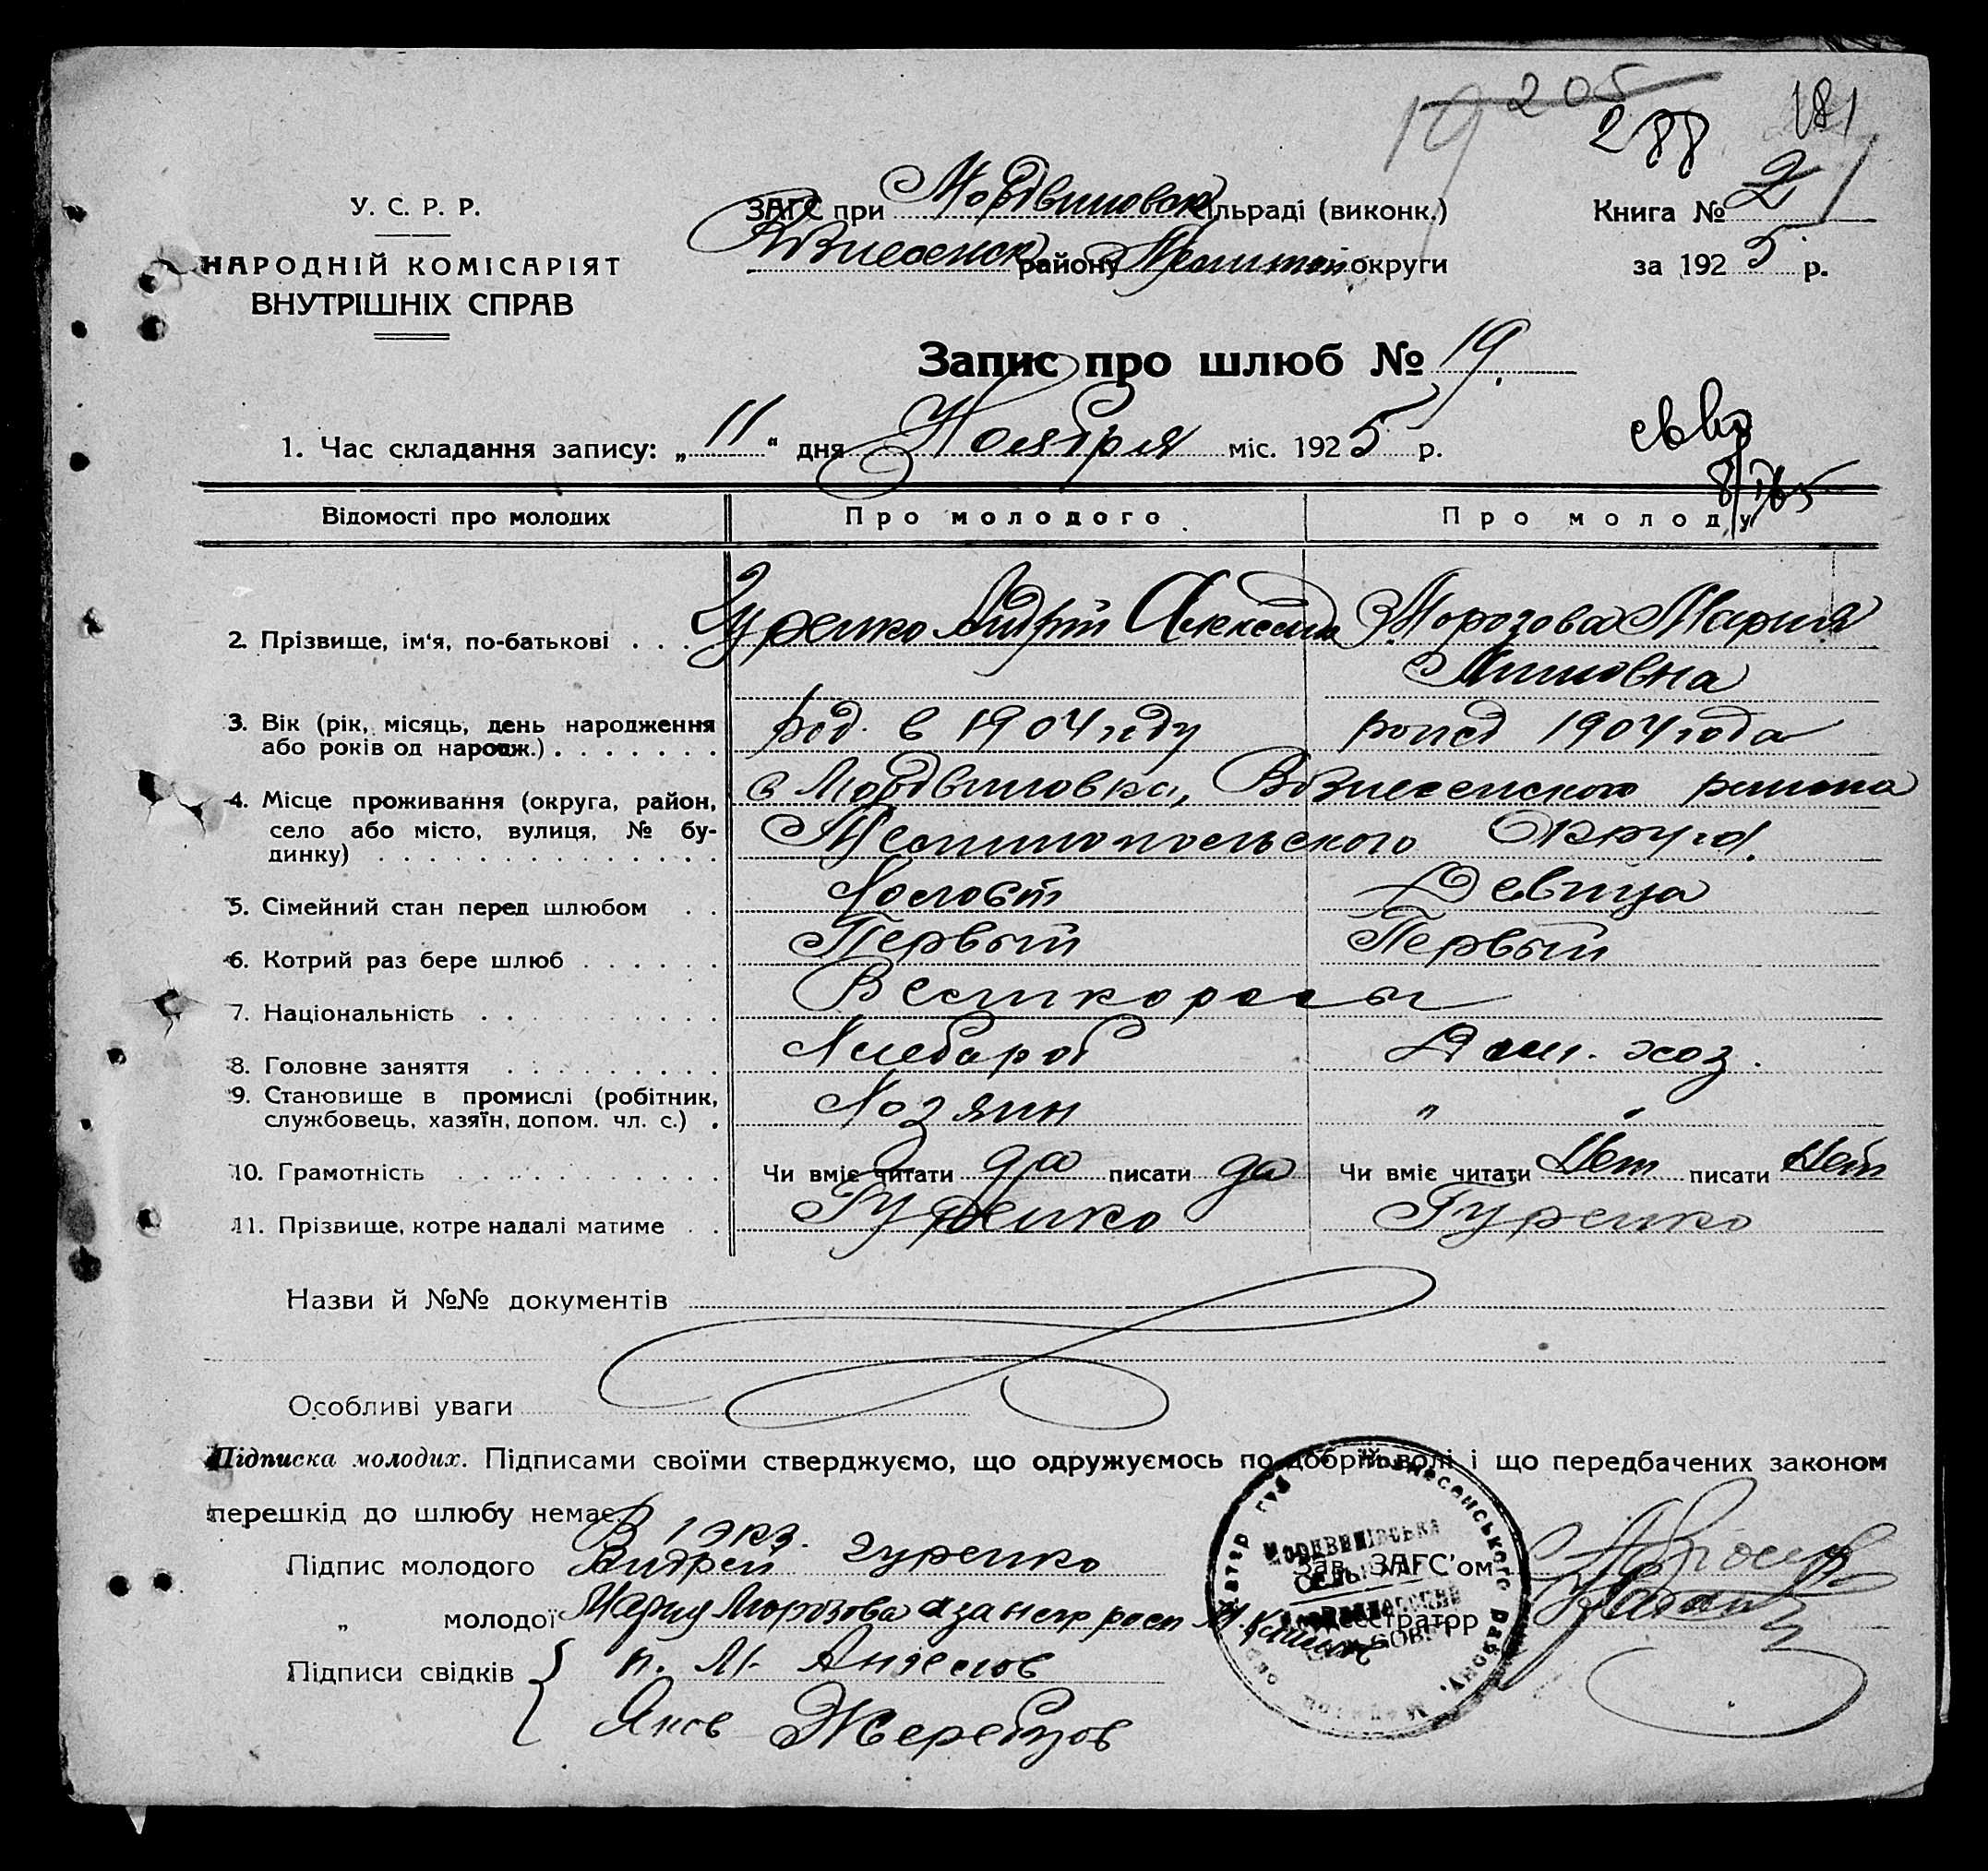 19 205
288 181
У. С. Р. Р.
НАРОДНІЙ КОМІСАРІЯТ
ВНУТРІШНІХ СПРАВ
ЗАГС при Мордвиновск сільраді (виконк.)
Вознесенск району Мелитоп округи
Книга № 21
за 1925 р.
Запис про шлюб № 19.
1. Час складання запису: „11" дня Ноября міс. 1925 р.
Відомості про молодих Про молодого Про молоду
2. Прізвище, ім'я, по-батькові . . . Гуренко Андрей Морозова Мария
3. Вік (рік, місяць, день народження
або років од народж.) . . . . . . . род. в 1904 году 1904 года
4. Місце проживання (округа, район, с Мордвиновка, Вознесенского района
село або місто, вулиця, № бу- Мелитопольского Округа.
динку) . . . . . . . . . . . . . .
5. Сімейний стан перед шлюбом . . Холост Девица
6. Котрий раз бере шлюб . . . . . . Первый Первый
7. Національність . . . . . . . . . . Великоросы
8. Головне заняття . . . . . . . . . Хлебороб Дом. хоз.
9. Становище в промислі (робітник,
службовець, хазяїн, допом. чл. с.) . Хозяин "
10. Грамотність . . . . . . . . . . . Чи вміє читати да писати да Чи вміє читати Нет писати Нет
11. Прізвище, котре надалі матиме . . Гуренко Гуренко
Назви й №№ документів
Особливі уваги
Підписка молодих. Підписами своїми стверджуємо, що одружуємось по добрій волі і що передбачених законом
перешкід до шлюбу немає.
В 1 экз.
Підпис молодого Андрей гуренко
Зав. ЗАГС'ом
„ молодої Мария Морозова а за негр расп
Реєстратор
Підписи свідків { п. М.
Яков Жеребцов